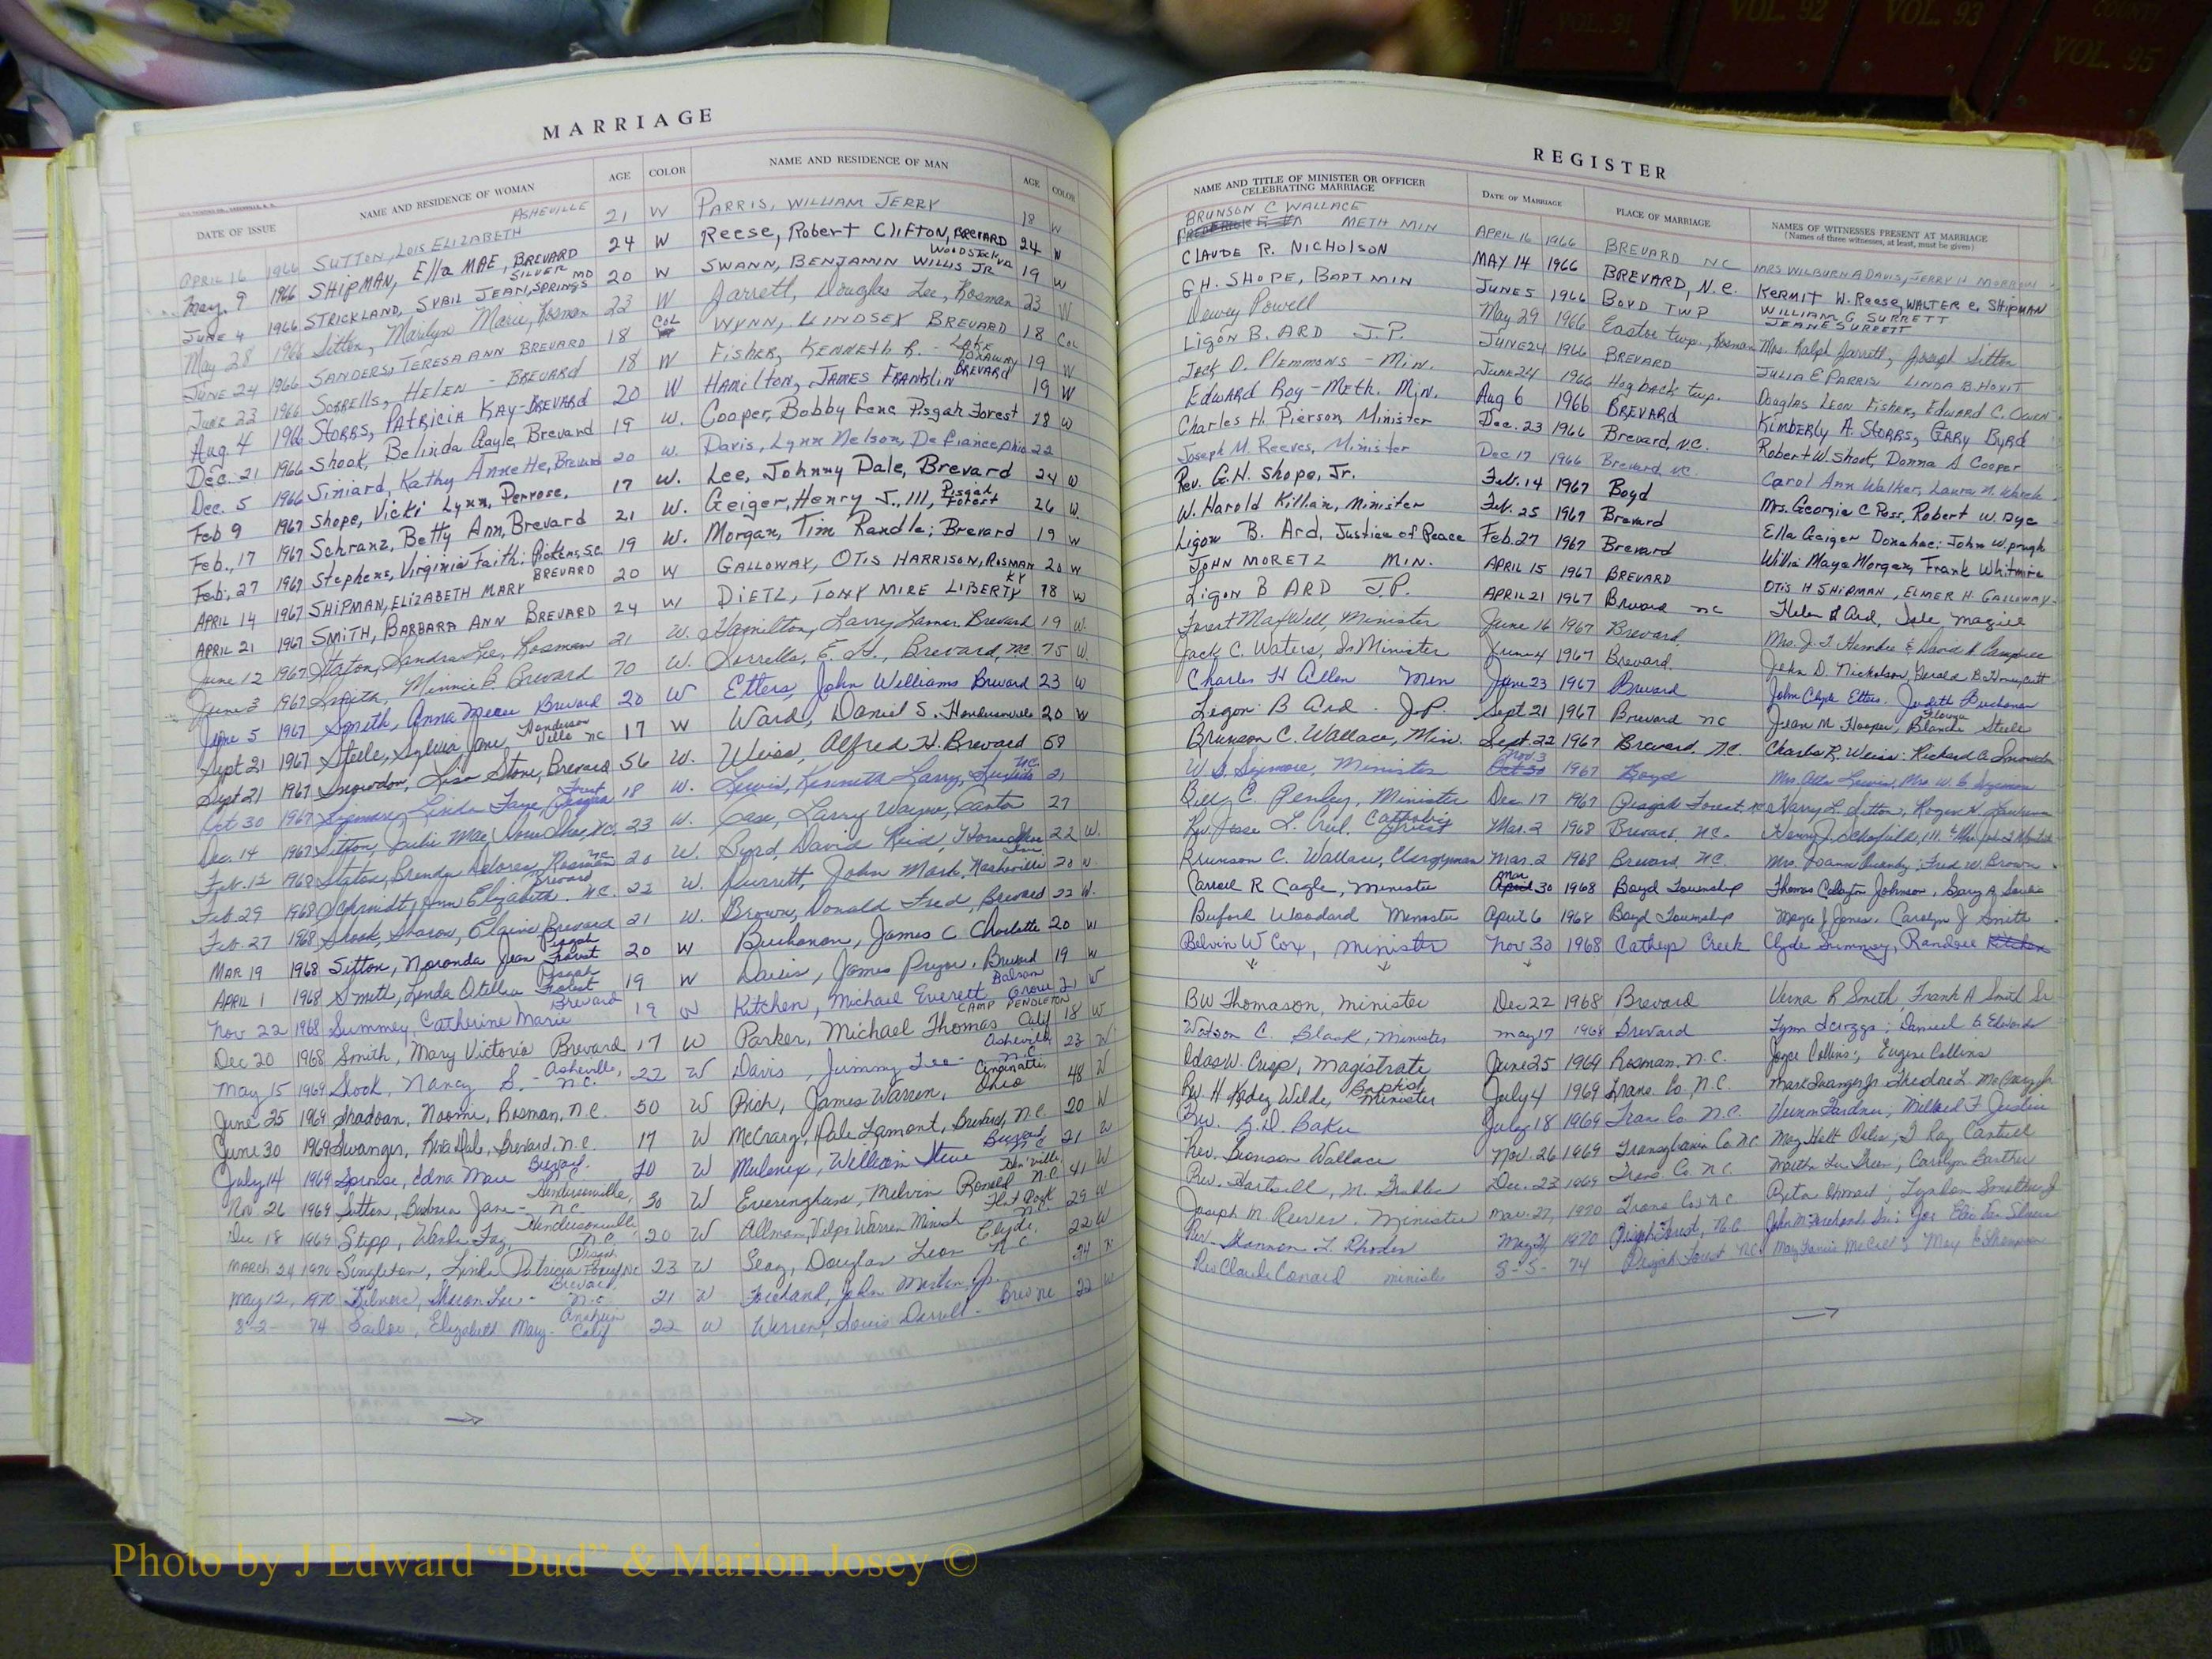 VOL. 91 VOL. 92 VOL. 93 COUNTY VOL. 95
MARRIAGE
DATE OF ISSUE NAME AND RESIDENCE OF WOMAN AGE COLOR NAME AND RESIDENCE OF MAN AGE COLOR
APRIL 16 1966 SUTTON, LOIS ELIZABETH ASHEVILLE 21 W PARRIS, WILLIAM JERRY 18 W
May 9 1966 SHIPMAN, Ella MAE, BREVARD 24 W Reese, Robert Clifton, BREVARD 24 W
JUNE 4 1966 STRICKLAND, SYBIL JEAN, SILVER SPRINGS MD 20 W SWANN, BENJAMIN WILLIS JR WOODSTOCK VA 19 W
May 28 1966 Sitton, Marilyn Marie, Rosman 23 W Jarrett, Douglas Lee, Rosman 23 W
JUNE 24 1966 SANDERS, TERESA ANN BREVARD 18 COL WYNN, LINDSEY BREVARD 18 COL
June 23 1966 Sorrells, HELEN - BREVARD 18 W Fisher, KENNETH R. - LAKE TOXAWAY 19 W
Aug. 4 1966 STORRS, PATRICIA KAY - BREVARD 20 W HAMILTON, JAMES FRANKLIN BREVARD 19 W
Dec. 21 1966 Shook, Belinda Gayle, Brevard 19 W. Cooper, Bobby Gene Pisgah Forest 18 W
Dec. 5 1966 Siniard, Kathy Annette, Brevard 20 W. Davis, Lynn Nelson, Defiance, Ohio 22
Feb 9 1967 Shope, Vicki Lynn, Penrose, 17 W. Lee, Johnny Dale, Brevard 24 W
Feb., 17 1967 Schranz, Betty Ann, Brevard 21 W. Geiger, Henry J., III, Pisgah Forest 26 W.
Feb., 27 1967 Stephens, Virginia Faith; Pickens, S.C. 19 W. Morgan, Tim Randle; Brevard 19 W
APRIL 14 1967 SHIPMAN, ELIZABETH MARY BREVARD 20 W GALLOWAY, OTIS HARRISON, ROSMAN 20 W
APRIL 21 1967 SMITH, BARBARA ANN BREVARD 24 W DIETZ, TONY MIRE LIBERTY KY 18 W
June 12 1967 Staton, Sandra Lee, Rosman 21 W. Hamilton, Larry Lamar, Brevard 19 W.
June 3 1967 Smith, Minnie B. Brevard 70 W. Sorrells, E. H., Brevard, N.C. 75 W.
June 5 1967 Smith, Anna Brevard 20 W Etters, John Williams Brevard 23 W
Sept 21 1967 Steele, Sylvia Jane, Henderson ville NC 17 W Ward, Daniel S. Hendersonville 20 W
Sept 21 1967 Snowdon, Lisa Stone, Brevard 56 W. Weiss, Alfred H. Brevard 58
Oct 30 1967 Sigmon, Linda Faye, Pisgah Forest 18 W. Lewis, Kenneth Larry, N.C. 21
Dec. 14 1967 Sitton, Julie Mae, Horse Shoe, N.C. 23 W. Case, Larry Wayne, Canton 27
Feb. 12 1968 Staton, Brenda Delores, Rosman NC 20 W. Byrd, David Reid, Horse Shoe 22 W.
Feb. 29 1968 Schmidt, Ann Elizabeth Brevard N.C. 22 W. Durrett, John Mark, Nashville 20 W.
Feb. 27 1968 Shook, Sharon, Elaine Brevard 21 W. Brown, Donald Fred, Brevard 22 W.
MAR 19 1968 Sitton, Noronda Jean Pisgah Forest 20 W Buchanan, James C Charlotte 20 W
APRIL 1 1968 Smith, Linda Otellia Pisgah Forest 19 W Davis, James Pryor, Brevard 19 W
Nov 22 1968 Summey, Catherine Marie Brevard 19 W Kitchen, Michael Everett Balsam Grove 21 W
Dec 20 1968 Smith, Mary Victoria Brevard 17 W Parker, Michael Thomas CAMP PENDLETON Calif 18 W
May 15 1969 Shook, Nancy S. - Asheville, N.C. 22 W Davis, Jimmy Lee - Asheville N.C. 23 W
June 25 1969 Shadoan, Naomi, Rosman, N.C. 50 W Rich, James Warren, Cincinatti, Ohio 48 W
June 30 1969 Swanger, Reva Dale, Brevard, N.C. 17 W McCrary, Dale Lamont, Brevard, N.C. 20 W
July 14 1969 Sprouse, Edna Mae Brevard. 20 W Mulenex, William Steve Brevard N C 21 W
Nov. 26 1969 Sitton, Barbara Jane - Hendersonville, N.C. 30 W Everingham, Melvin Ronald N.C. 41 W
Dec 18 1969 Stepp, Wanda Fay, Hendersonville, N.C. 20 W Allman, Warren Flat Rock N.C. 29 W
MARCH 24 1970 Singleton, Linda Patricia Pisgah Forest, NC 23 W Seay, Douglas Leon Clyde, N C 22 W
May 12, 1970 Sharon Lee - Brevard N.C. 21 W Freehand, John Martin, Jr. 24 W
8-2- 74 Sailor, Elizabeth Mary - Anaheim Calif 22 W Warren, Louis Darrell - Brev NC 22 W
REGISTER
NAME AND TITLE OF MINISTER OR OFFICER CELEBRATING MARRIAGE DATE OF MARRIAGE PLACE OF MARRIAGE NAMES OF WITNESSES PRESENT AT MARRIAGE (Names of three witnesses, at least, must be given)
BRUNSON C WALLACE METH MIN APRIL 16 1966 BREVARD NC MRS WILBURN A DAVIS, JERRY H MORROW
CLAUDE R. NICHOLSON MAY 14 1966 BREVARD, N.C. KERMIT W. Reese, WALTER C. SHIPMAN
G.H. SHOPE, BAPT MIN JUNE 5 1966 BOYD TWP WILLIAM G SURRETT JEANE SURRETT
Dewey Powell May 29 1966 Eastoe twp., Rosman Mrs. Ralph Jarrett, Joseph Sitton
LIGON B. ARD J.P. JUNE 24 1966 BREVARD JULIA E PARRIS LINDA B. HOXIT
Jack D. Plemmons - Min. June 24 1966 Hogback twp. Douglas Leon Fisher, Edward C. Owen
Edward Roy - Meth. Min. Aug 6 1966 BREVARD Kimberly A. Storrs, GARY Byrd
Charles H. Pierson, Minister Dec. 23 1966 Brevard, N.C. Robert W. Shook, Donna S Cooper
Joseph M. Reeves, Minister Dec 17 1966 Brevard N.C. Carol Ann Walker, Laura M.
Rev. G.H. Shope, Jr. Feb. 14 1967 Boyd Mrs. Georgie C Ross, Robert W. Dye
W. Harold Killian, Minister Feb. 25 1967 Brevard Ella Geiger Donahoe; John W. Pough
Ligon B. Ard, Justice of Peace Feb. 27 1967 Brevard Willie Maye Morgan, Frank Whitmire
JOHN MORETZ MIN. APRIL 15 1967 BREVARD OTIS H SHIPMAN, ELMER H. GALLOWAY
Ligon B ARD J.P. APRIL 21 1967 Brevard NC Helen S Ard, Magill
Forest Maxwell, Minister June 16 1967 Brevard Mrs. J. T. & David
Jack C. Waters, Sr Minister June 4 1967 Brevard. John D. Nickolson, Gerald B. Honeycutt
Charles H Allen Min June 23 1967 Brevard John Clyde Etters. Judith Buchanan
Ligon B Ard. J.P. Sept 21 1967 Brevard NC Jean M. Hooper, Blanche Steele
Brunson C. Wallace, Min. Sept. 22 1967 Brevard, N.C. Charles R. Weiss; Richard A. Snowdon
W. S. Sigmon, Minister Nov. 3 1967 Boyd Mrs. Lewis, Mrs. W. S. Sigmon
Bill C. Penley, Minister Dec. 17 1967 Pisgah Forest, NC Harry L. Sitton, Roger H.
Rev. Jesse L. Catholic Priest Mar. 2 1968 Brevard, N.C. Henry J. Schofield, III. & Mrs.
Brunson C. Wallace, Clergyman Mar. 2 1968 Brevard, N.C. Mrs. Joann; Fred W. Brown
Carroll R Cagle, Minister Mar 30 1968 Boyd Township Thomas Clayton Johnson, Gary A
Buford Woodard Minister April 6 1968 Boyd Township Jones, Carolyn J Smith
Belvin W Cox, Minister Nov 30 1968 Catheys Creek Clyde Summey, Randall Kitchen
BW Thomason, minister Dec 22 1968 Brevard Verna R Smith, Frank A Smith Sr
Watson C. Black, Minister may 17 1968 Brevard Lynn Scruggs; Samuel E. Edwards
Odas W. Crisp, Magistrate June 25 1969 Rosman, N.C. Joyce Collins; Eugene Collins
Rev. H. Wilde, Baptist Minister July 4 1969 Trans. Co, N.C. Mark Swanger Jr Theodore L. McCrary Jr
Rev. Baker July 18 1969 Trans Co. N.C. Gardner; Millard F.
Rev. Brunson Wallace Nov. 26 1969 Transylvania Co. NC May Holt; Ray
Rev. Hartsell, M. Dec. 23 1969 Trans. Co. N.C. Martha, Carolyn
Joseph M Reeves. Minister Mar. 27, 1970 Trans Co. N.C.
Rev. Shannon L. Rhodes May 1970 Pisgah Forest, N.C.
Rev Claude Conard minister 8-5- 74 Pisgah Forest NC May Thompson
Photo by J Edward “Bud” & Marion Josey ©